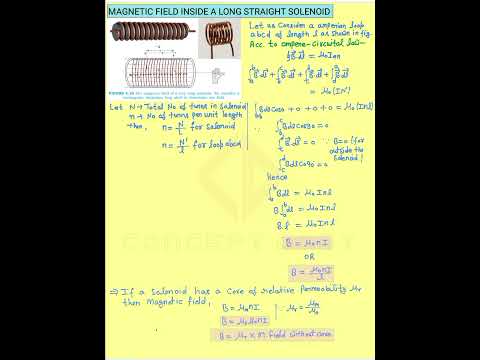 MAGNETIC FIELD INSIDE A LONG STRAIGHT SOLENOID
Let us Consider a amperian loop
abcd of length l as shown in fig.
Acc. to ampere-Circuital law-
∮B⃗.dl⃗ = μ₀Ien
∫ₐᵇB⃗.dl⃗ + ∫B⃗.dl⃗ + ∫B⃗.dl⃗ + ∫B⃗.dl⃗
= μ₀(IN')
Let N→Total No of turns in solenoid
n→ No of turns per unit length
then, n = N/L for solenoid
n = N'/l for loop abcd
∫ₐᵇBdlCos0 + 0 + 0 + 0 = μ₀(Inl)
∵ ∫BdlCos90 = 0
∫B⃗.dl⃗ = 0 ∵ B=0 (for
outside the
Solenoid)
∫BdlCos90 = 0
Hence
∫ₐᵇBdl = μ₀Inl
B∫ₐᵇdl = μ₀Inl
B.l = μ₀Inl
B = μ₀nI
OR
B = μ₀NI/L
⇒ If a Solenoid has a Core of relative Permeability μᵣ
then Magnetic field,
B = μₘnI ∵ μᵣ = μₘ/μ₀
B = μᵣμ₀nI
B = μᵣ × m. field without core
CONCEPT